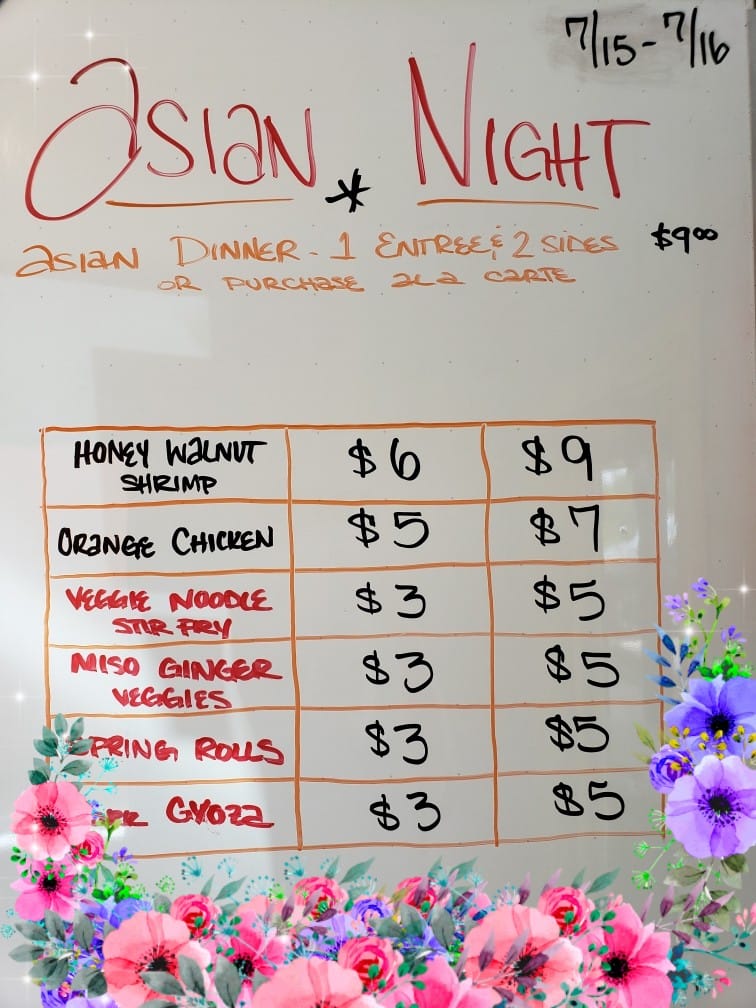 7/15-7/16
ASIAN * NIGHT
ASIAN DINNER - 1 ENTREE & 2 SIDES $9.00
OR PURCHASE ALA CARTE
HONEY WALNUT
SHRIMP
$6 $9
ORANGE CHICKEN $5 $7
VEGGIE NOODLE
STIR FRY
$3 $5
MISO GINGER
VEGGIES
$3 $5
SPRING ROLLS $3 $5
GYOZA $3 $5